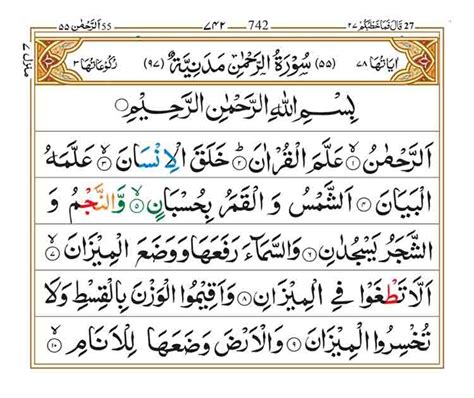 27 قَالَ فَمَا خَطْبُكُمْ ٢٧ 742 ٧٤٢ 55 اَلرَّحْمٰن ٥٥
اٰيَاتُهَا ٧٨ (٥٥) سُوْرَةُ الرَّحْمٰنِ مَدَنِيَّةٌ (٩٧) رُكُوْعَاتُهَا ٣
منزل ٧
بِسْمِ اللهِ الرَّحْمٰنِ الرَّحِيْمِ
اَلرَّحْمٰنُ ١ عَلَّمَ الْقُرْاٰنَ ٢ خَلَقَ الْاِنْسَانَ ٣ عَلَّمَهُ
الْبَيَانَ ٤ اَلشَّمْسُ وَ الْقَمَرُ بِحُسْبَانٍ ٥ وَّالنَّجْمُ وَ
الشَّجَرُ يَسْجُدٰنِ ٦ وَالسَّمَآءَ رَفَعَهَا وَوَضَعَ الْمِيْزَانَ ٧
اَلَّا تَطْغَوْا فِي الْمِيْزَانِ ٨ وَاَقِيْمُوا الْوَزْنَ بِالْقِسْطِ وَلَا
تُخْسِرُوا الْمِيْزَانَ ٩ وَالْاَرْضَ وَضَعَهَا لِلْاَنَامِ ١٠